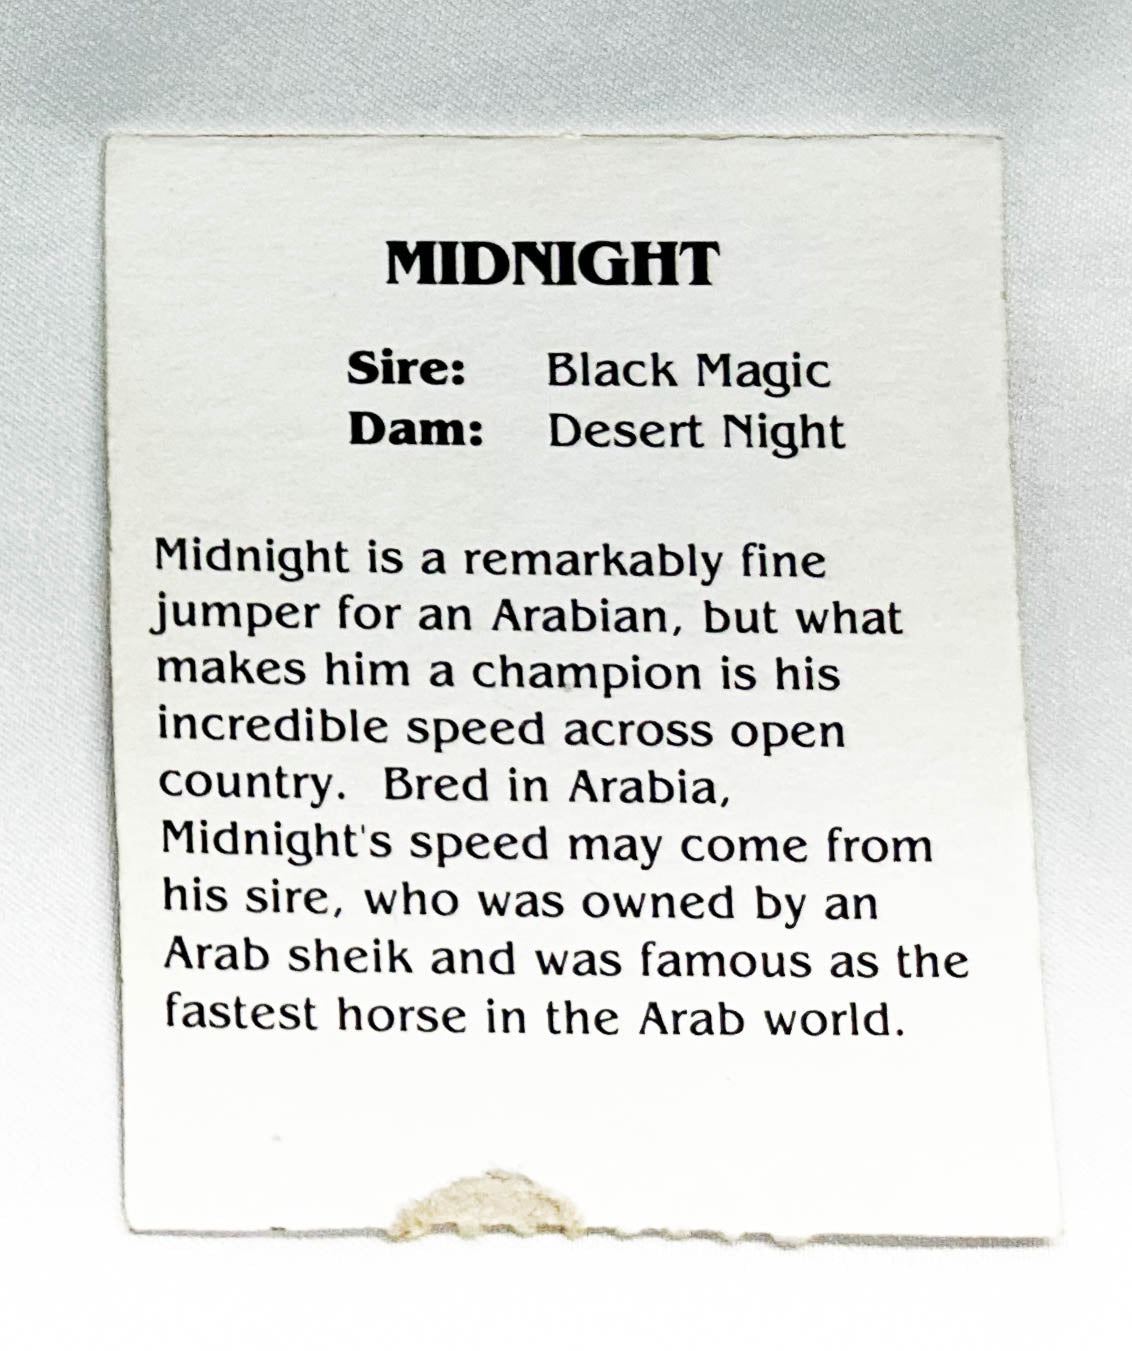 MIDNIGHT
Sire: Black Magic
Dam: Desert Night
Midnight is a remarkably fine
jumper for an Arabian, but what
makes him a champion is his
incredible speed across open
country.  Bred in Arabia,
Midnight's speed may come from
his sire, who was owned by an
Arab sheik and was famous as the
fastest horse in the Arab world.